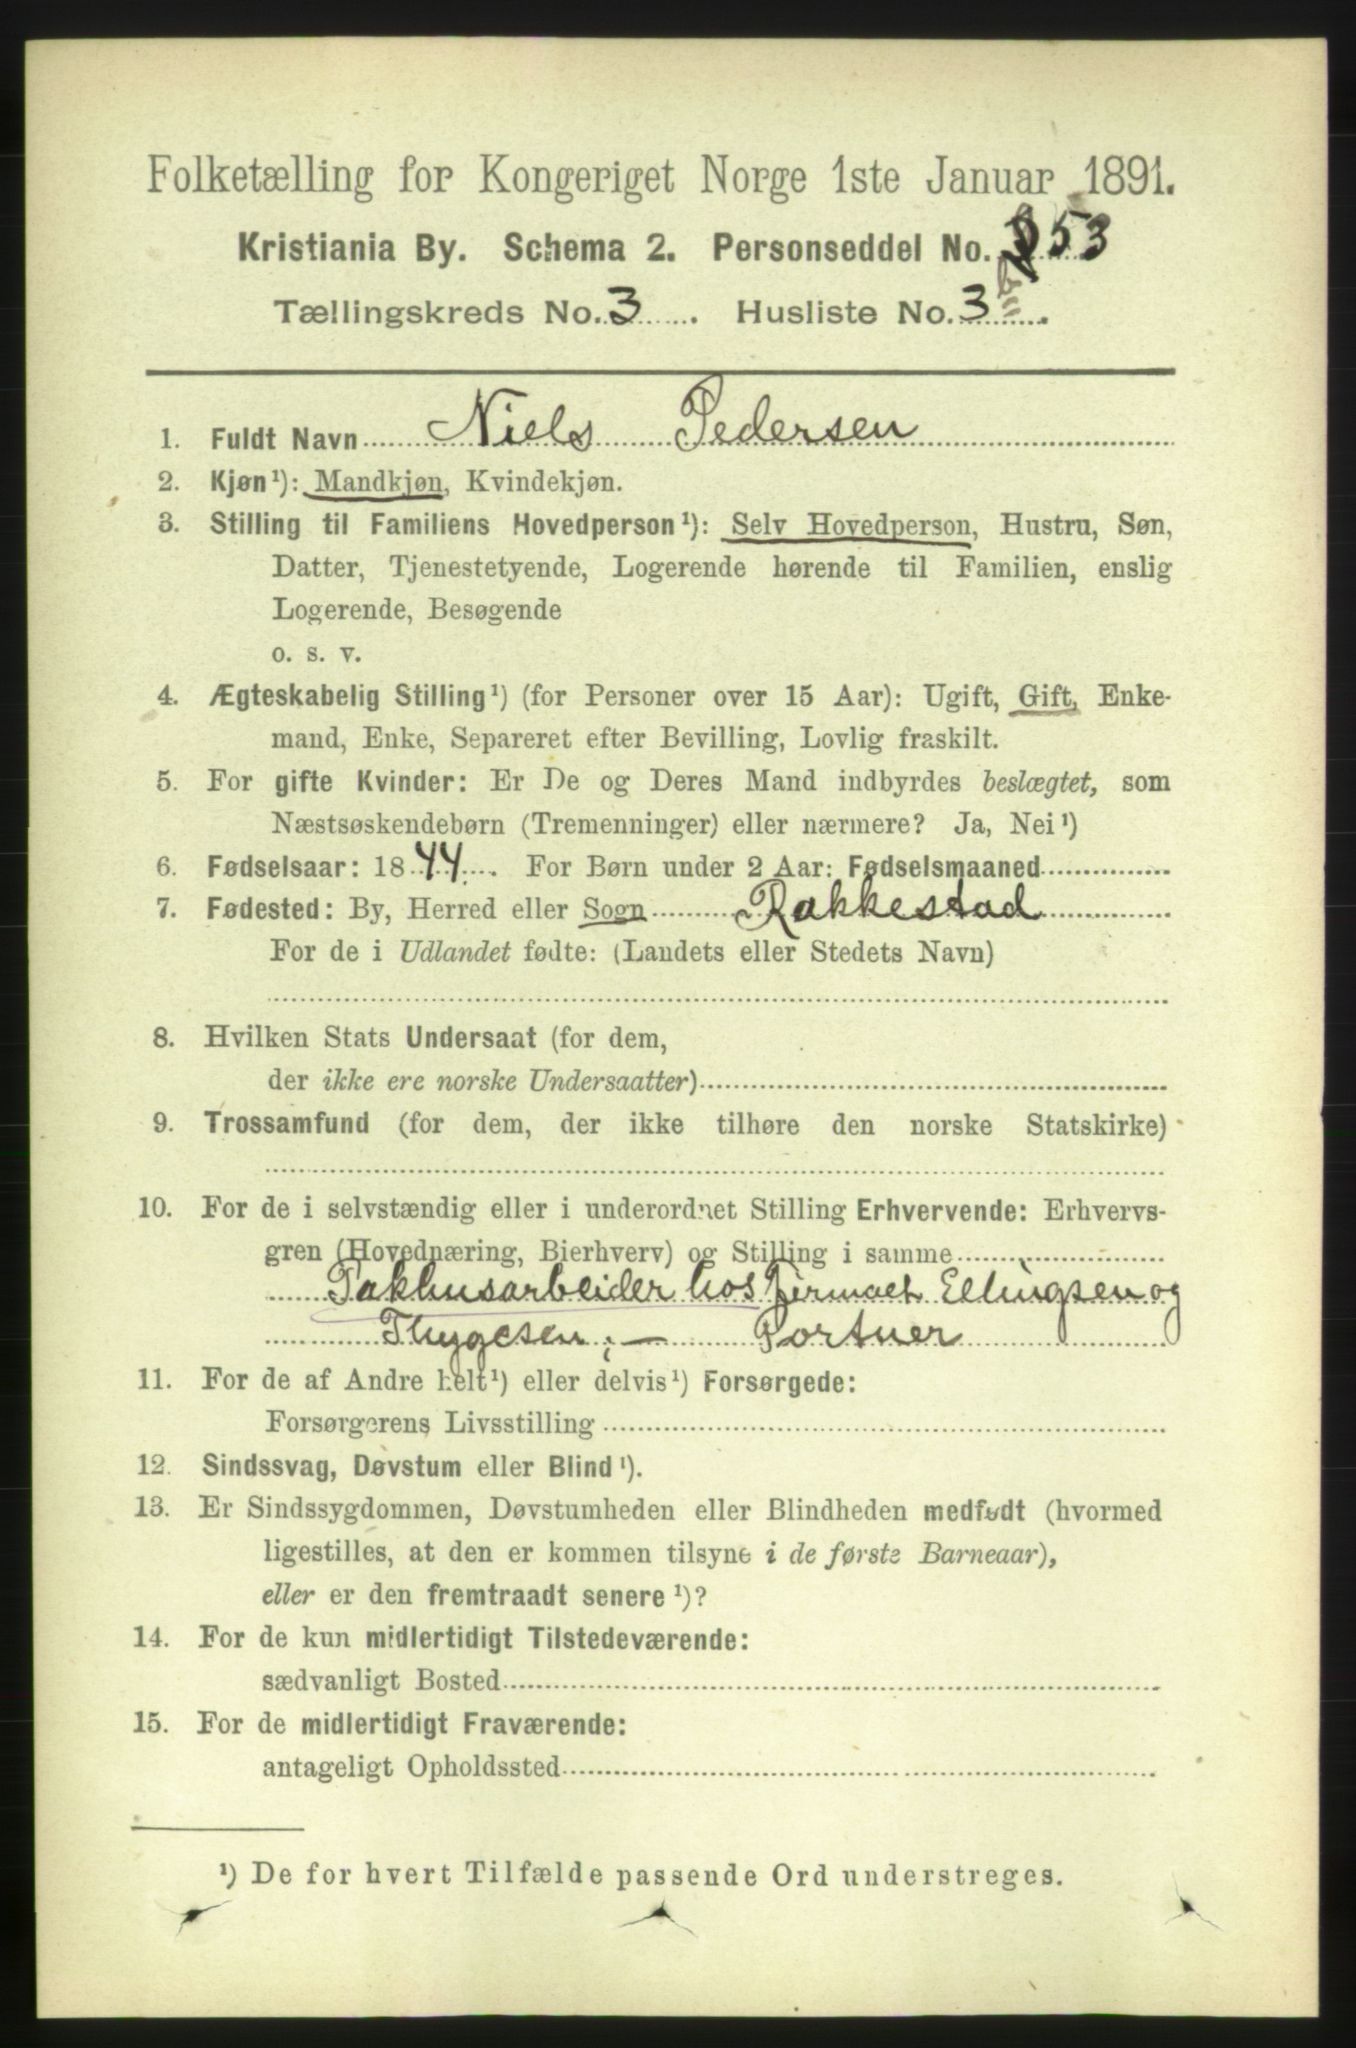 Folketælling for Kongeriget Norge 1ste Januar 1891.
Kristiania By. Schema 2. Personseddel No. 53
Tællingskreds No. 3 . Husliste No. 3 .
1. Fuldt Navn Niels Pedersen
2. Kjøn¹): Mandkjøn, Kvindekjøn.
3. Stilling til Familiens Hovedperson¹): Selv Hovedperson, Hustru, Søn,
Datter, Tjenestetyende, Logerende hørende til Familien, enslig
Logerende, Besøgende
o. s. v.
4. Ægteskabelig Stilling¹) (for Personer over 15 Aar): Ugift, Gift, Enke-
mand, Enke, Separeret efter Bevilling, Lovlig fraskilt.
5. For gifte Kvinder: Er De og Deres Mand indbyrdes beslægtet, som
Næstsøskendebørn (Tremenninger) eller nærmere? Ja, Nei¹)
6. Fødselsaar: 1844. For Børn under 2 Aar: Fødselsmaaned
7. Fødested: By, Herred eller Sogn Rakkestad
For de i Udlandet fødte: (Landets eller Stedets Navn)
8. Hvilken Stats Undersaat (for dem,
der ikke ere norske Undersaatter)
9. Trossamfund (for dem, der ikke tilhøre den norske Statskirke)
10. For de i selvstændig eller i underordnet Stilling Erhvervende: Erhvervs-
gren (Hovednæring, Bierhverv) og Stilling i samme
Pakhusarbeider hos firmaet Ellingsen og
Thygesen; — Portner
11. For de af Andre helt¹) eller delvis¹) Forsørgede:
Forsørgerens Livsstilling
12. Sindssvag, Døvstum eller Blind¹).
13. Er Sindssygdommen, Døvstumheden eller Blindheden medfødt (hvormed
ligestilles, at den er kommen tilsyne i de første Barneaar),
eller er den fremtraadt senere¹)?
14. For de kun midlertidigt Tilstedeværende:
sædvanligt Bosted
15. For de midlertidigt Fraværende:
antageligt Opholdssted
¹) De for hvert Tilfælde passende Ord understreges.